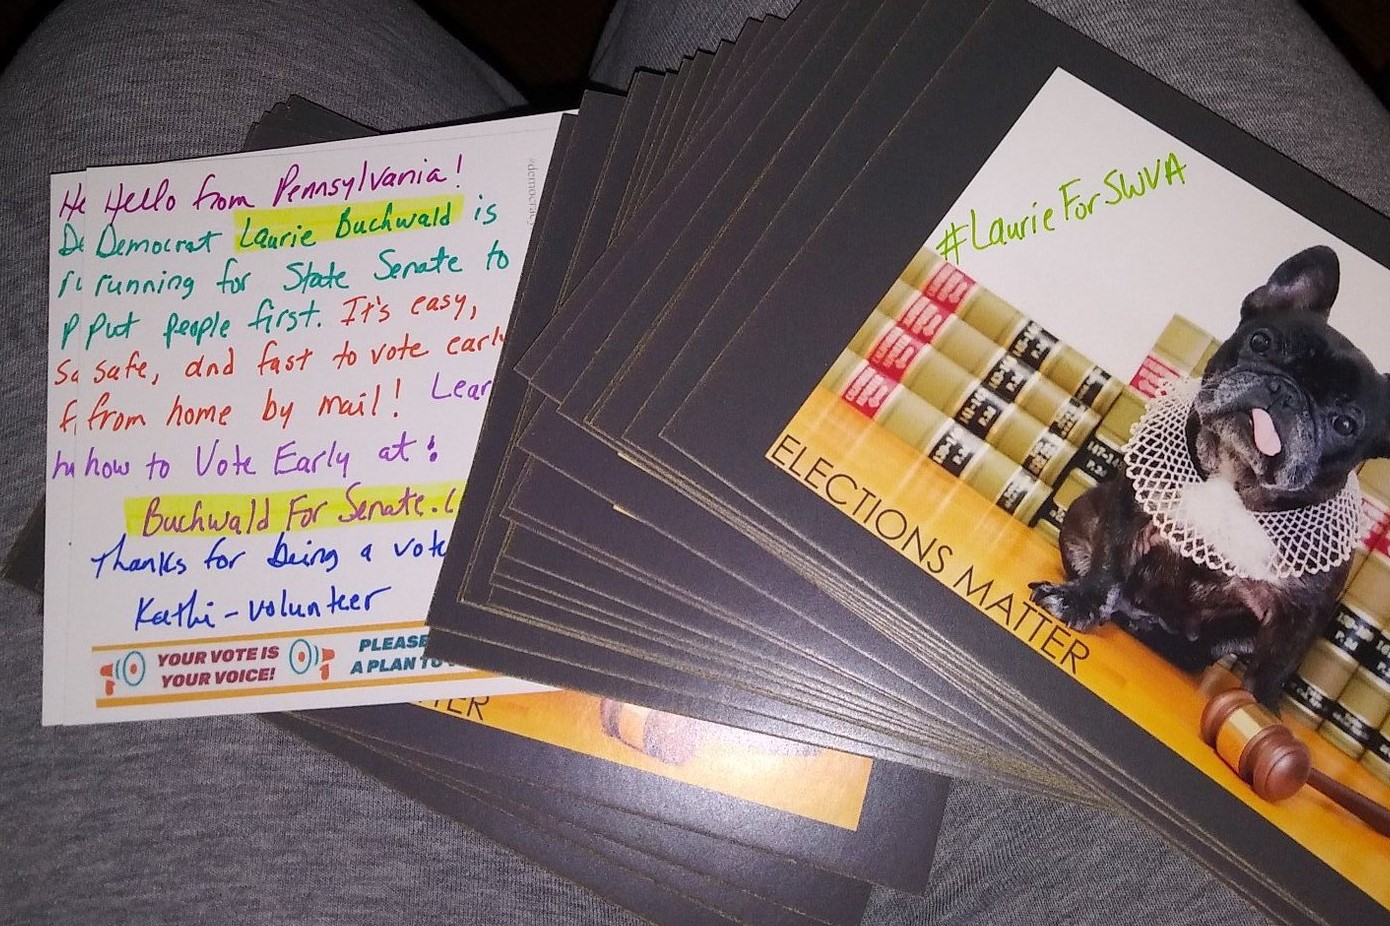 Hello from Pennsylvania!
Democrat Laurie Buchwald is
running for State Senate to
put people first. It's easy,
safe, and fast to vote early
from home by mail! Lear
how to Vote Early at:
Buchwald For Senate.
Thanks for being a vote
Kathi - volunteer
YOUR VOTE IS
YOUR VOICE!
PLEASE
A PLAN TO
#democracy
He
De
ru
p
sa
f
h
TER
#LaurieForSWVA
ELECTIONS MATTER